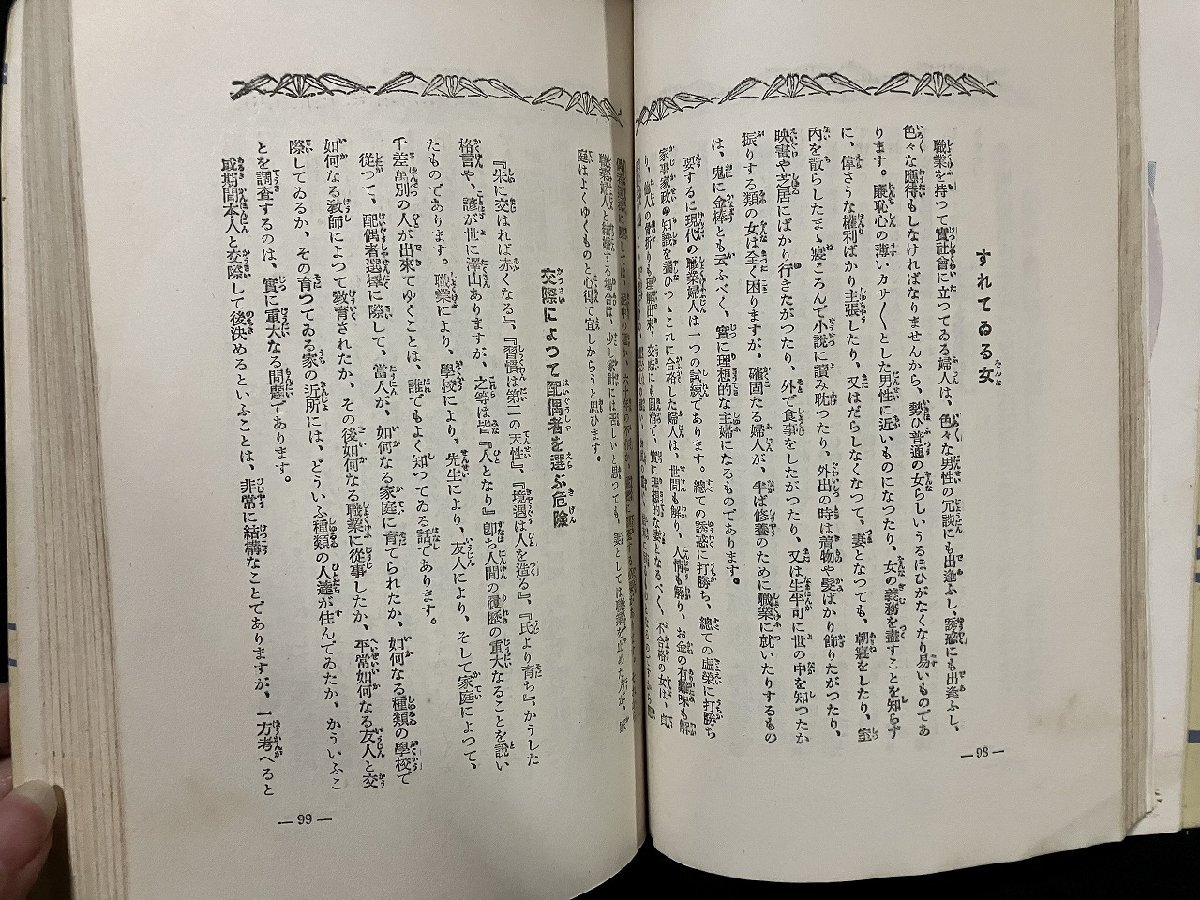 すれてゐる女
職業を持つて實社會に立つてゐる婦人は、色々な男性の冗談にも出逢ふし、誘惑にも出逢ふし、
色々な應待もしなければなりませんから、勢ひ普通の女らしいうるほひがたくなり易いものであ
ります。羞恥心の薄いカサ〱とした男性に近いものになつたり、女の義務を盡すことを知らず
に、偉さうな權利ばかり主張したり、又はだらしなくなつて、妻となつても、朝寢をしたり、室
内を散らしたまゝ寢ころんで小説に讀み耽つたり、外出の時は着物や髮ばかり飾りたがつたり、
映畫や芝居にばかり行きたがつたり、外で食事をしたがつたり、又は生半可に世の中を知つたか
振りする類の女は全く困りますが、確固たる婦人が、半ば修養のために職業に就いたりするもの
は、鬼に金棒とも云ふべく、實に理想的な主婦になるものであります。
要するに現代の職業婦人は一つの試驗であります。總ての誘惑に打勝ち、總ての虚榮に打勝ち
家事家政の知識を養ひつゝこれに合格した婦人は、世間も解り、人情も解り、お金の有難味も解
り、良人の骨折りも理解出來、交際にも
理想的な妻となるべく、不合格の女は、
職業婦人と結婚する場合は、少し家計には苦しいと思つても、妻としては職業を止めた方が、家
庭はよくゆくものと心得て宜しからうと思ひます。
—98—
交際によつて配偶者を選ぶ危險
『朱に交はれば赤くなる』、『習慣は第二の天性』、『境遇は人を造る』、『氏より育ち』、かうした
格言や、諺が世に澤山ありますが、之等は皆『人となり』卽ち人間の履歴の重大なることを説い
たものであります。職業により、學校により、先生により、友人により、そして家庭によつて、
千差萬別の人が出來てゆくことは、誰でもよく知つてゐる話であります。
從つて、配偶者選擇に際して、當人が、如何なる家庭に育てられたか、如何なる種類の學校で
如何なる敎師によつて敎育されたか、その後如何なる職業に從事したか、平常如何なる友人と交
際してゐるか、その育つてゐる家の近所には、どういふ種類の人達が住んでゐたか、かういふこ
とを調査するのは、實に重大なる問題であります。
或期間本人と交際して後決めるといふことは、非常に結構なことでありますが、一方考へると
—99—